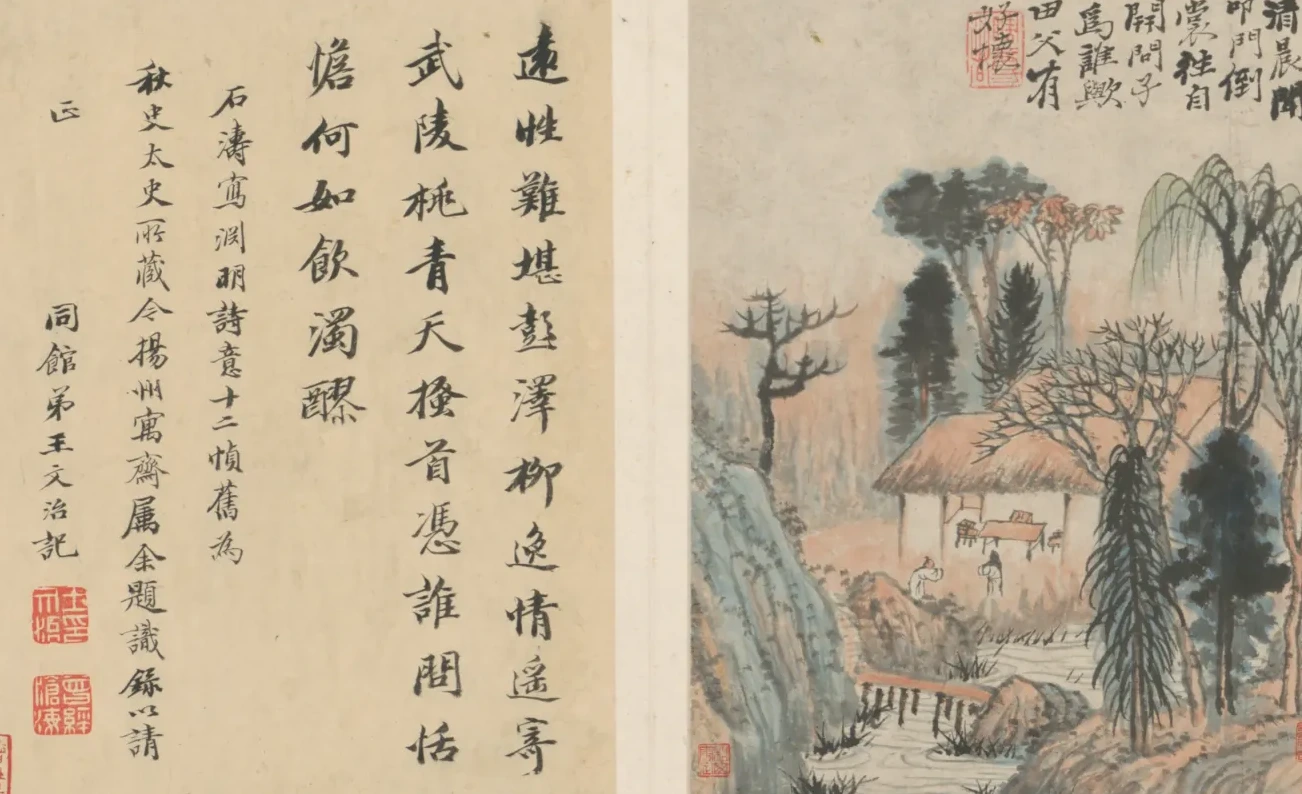 清晨聞
叩門倒
裳往自
開問子
為誰歟
田父有
好懷
遠性難堪彭澤柳逸情遥寄
武陵桃青天搔首憑誰問恬
憺何如飲濁醪
石濤寫淵明詩意十二幀舊為
秋史太史所藏今揚州寓齋属余題識錄以請
正 同館弟王文治記
曾經滄海